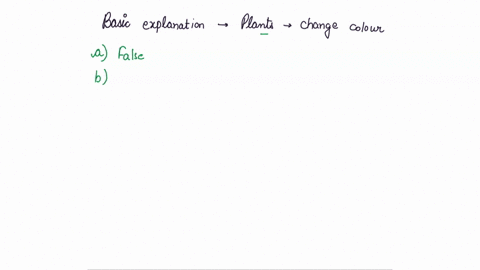 Basic explanation → Plants → change colour
a) False
b)